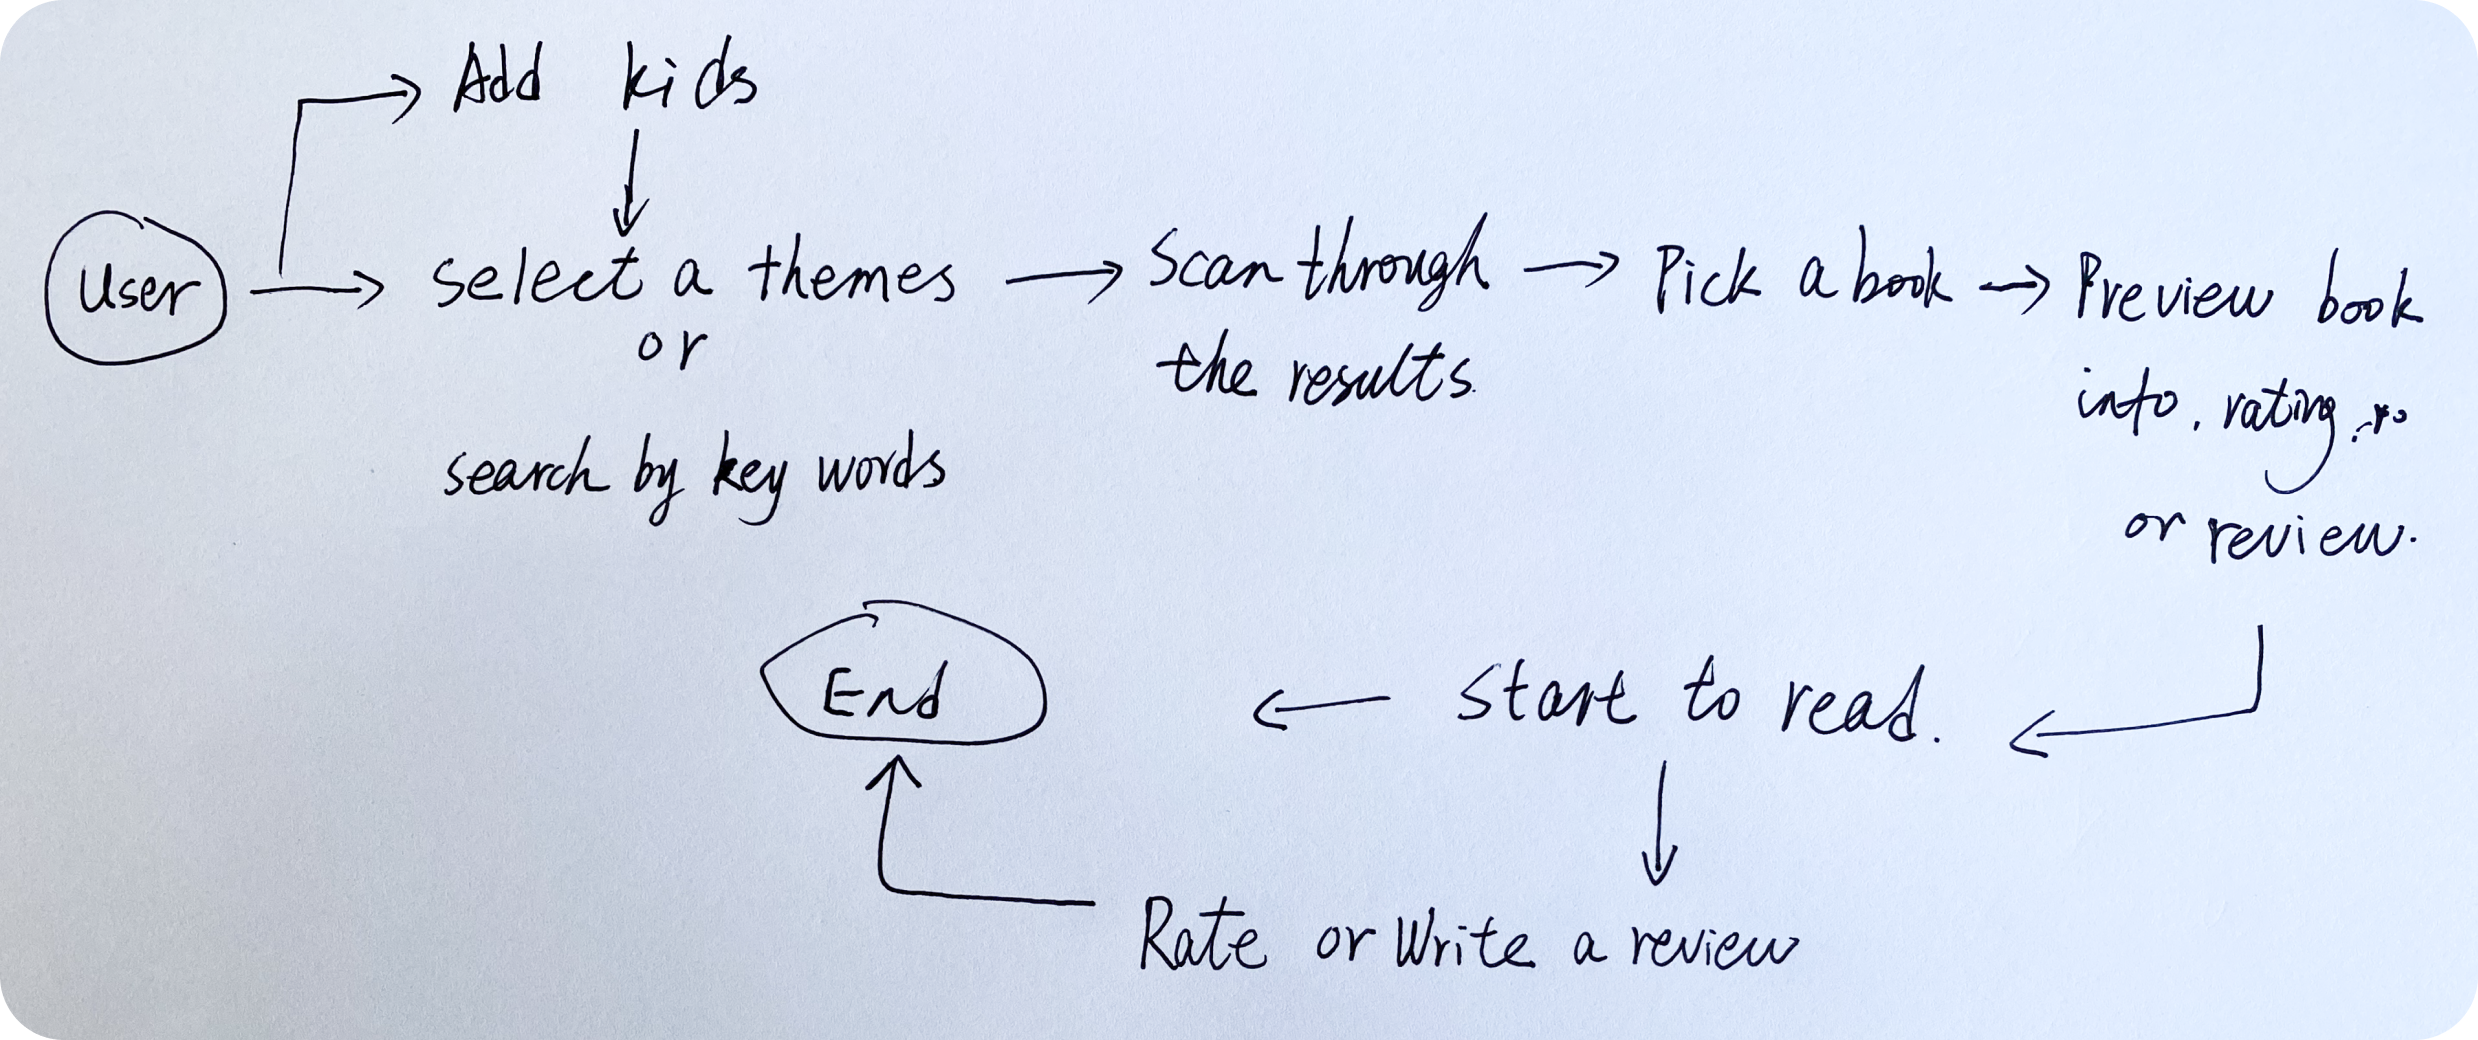 Add kids
User
select a themes
or
search by key words
Scan through
the results.
Pick a book
Preview book
info, rating,
or review.
Start to read.
End
Rate or Write a review